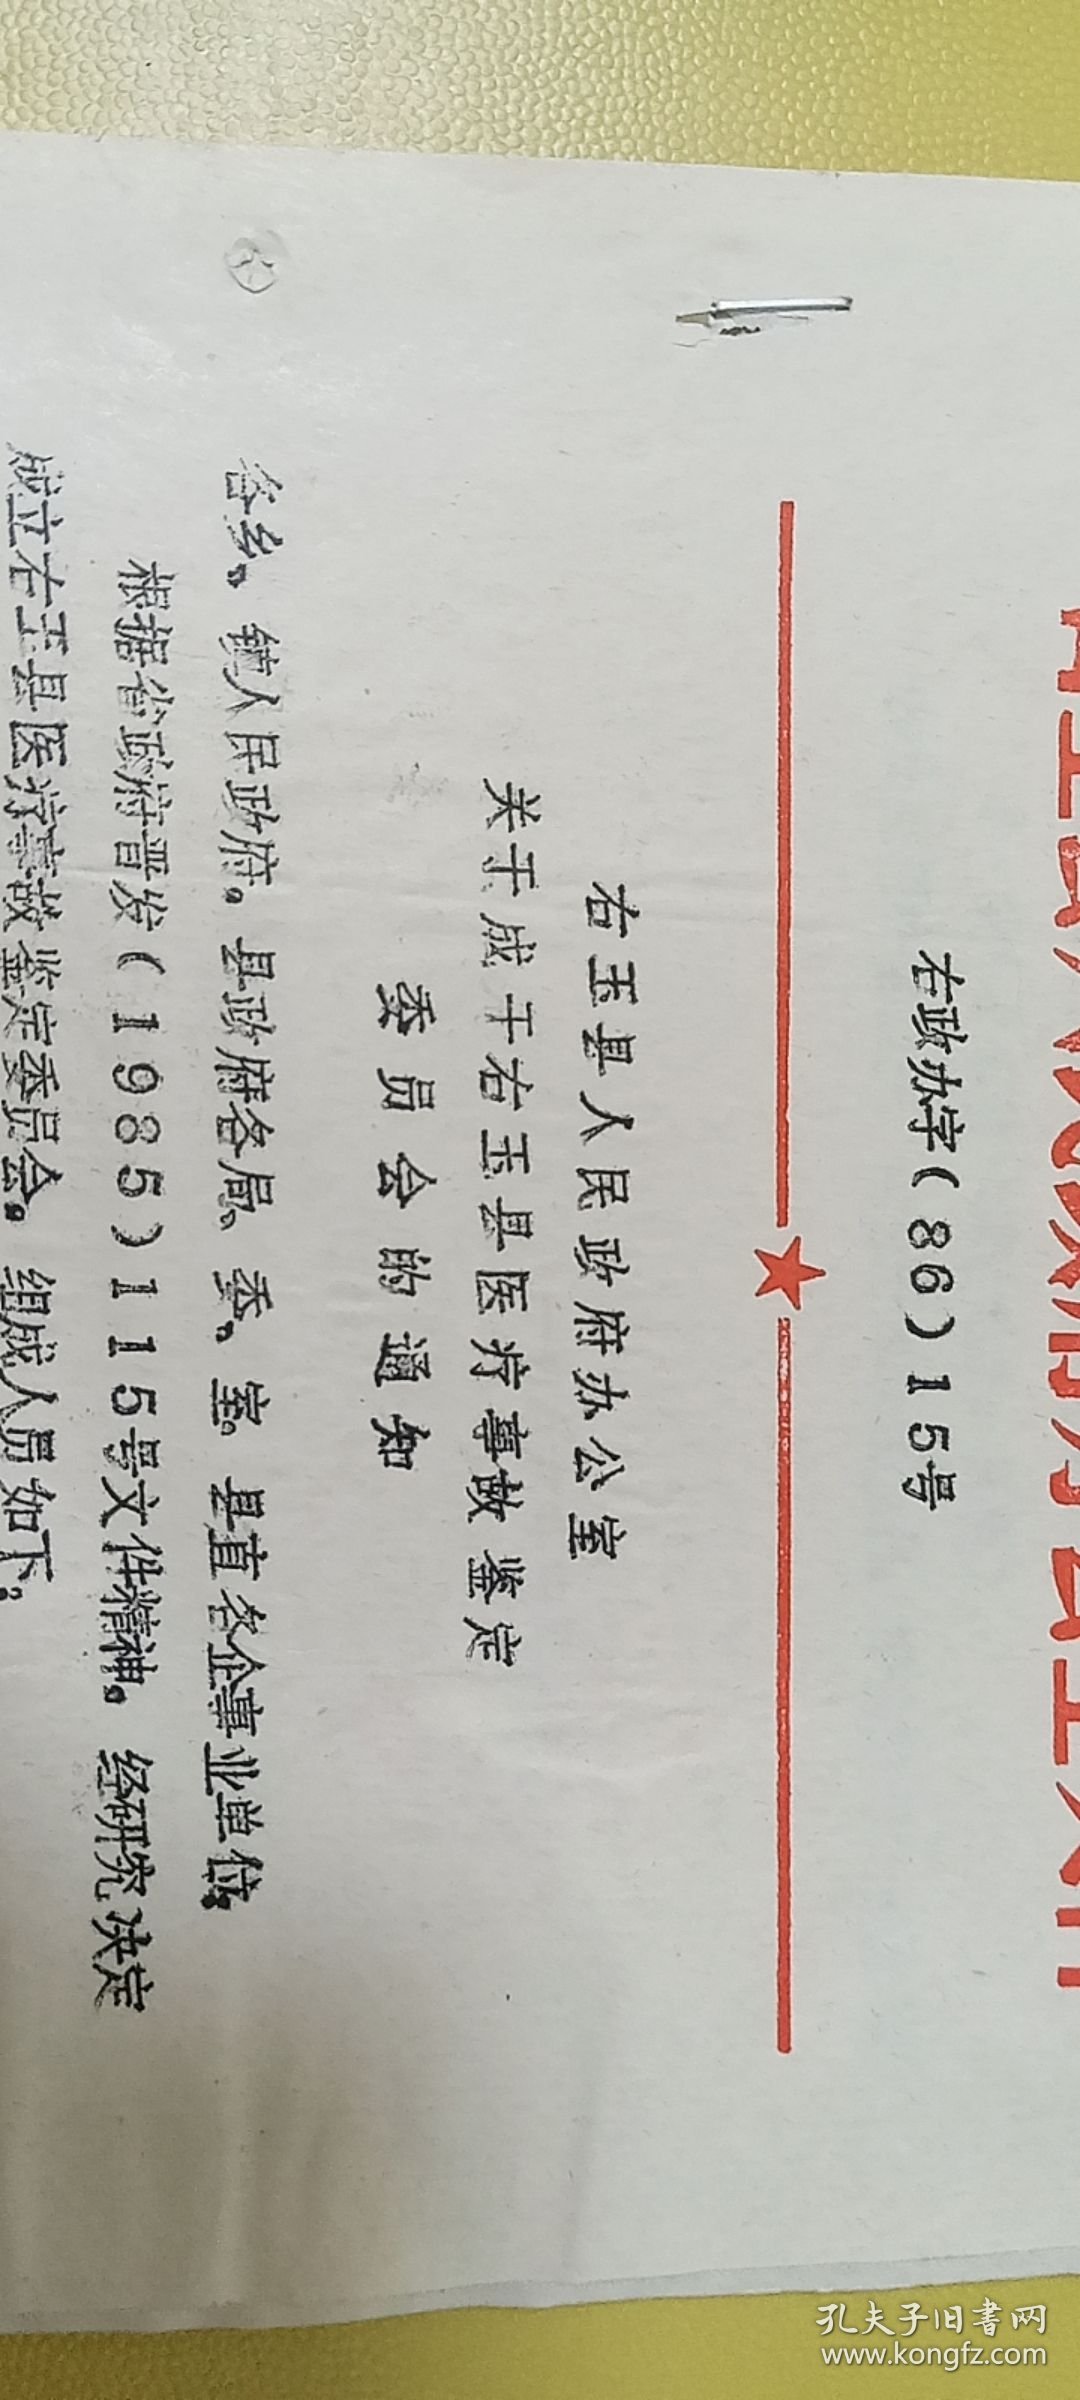 右政办字(86)15号
右玉县人民政府办公室
关于成于右玉县医疗事故鉴定
委员会的通知
各乡、镇人民政府。县政府各局、委、室。县直各企事业单位:
根据省政府晋发(1985)115号文件精神。经研究决定
成立右玉县医疗事故鉴定委员会。组成人员如下:
孔夫子旧書网
www.kongfz.com